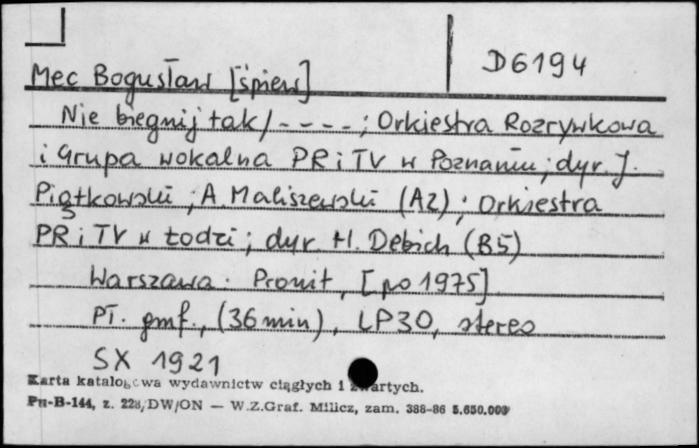 D6194
Mec Bogusław [śpiew]
Nie biegnij tak / - - - - ; Orkiestra Rozrywkowa
i Grupa wokalna PR i TV w Poznaniu; dyr. J.
Piątkowski ; A Maliszewski (A2) ; Orkiestra
PR i TV w Łodzi ; dyr H. Debich (B5)
Warszawa. Pronit, [po 1975]
Pł. gmf., (36 min), LP30, stereo
SX 1921
Karta katalogowa wydawnictw ciągłych i zwartych.
Pu-B-144, z. 228/DW/ON — W.Z.Graf. Milicz, zam. 388-86 5.650.000